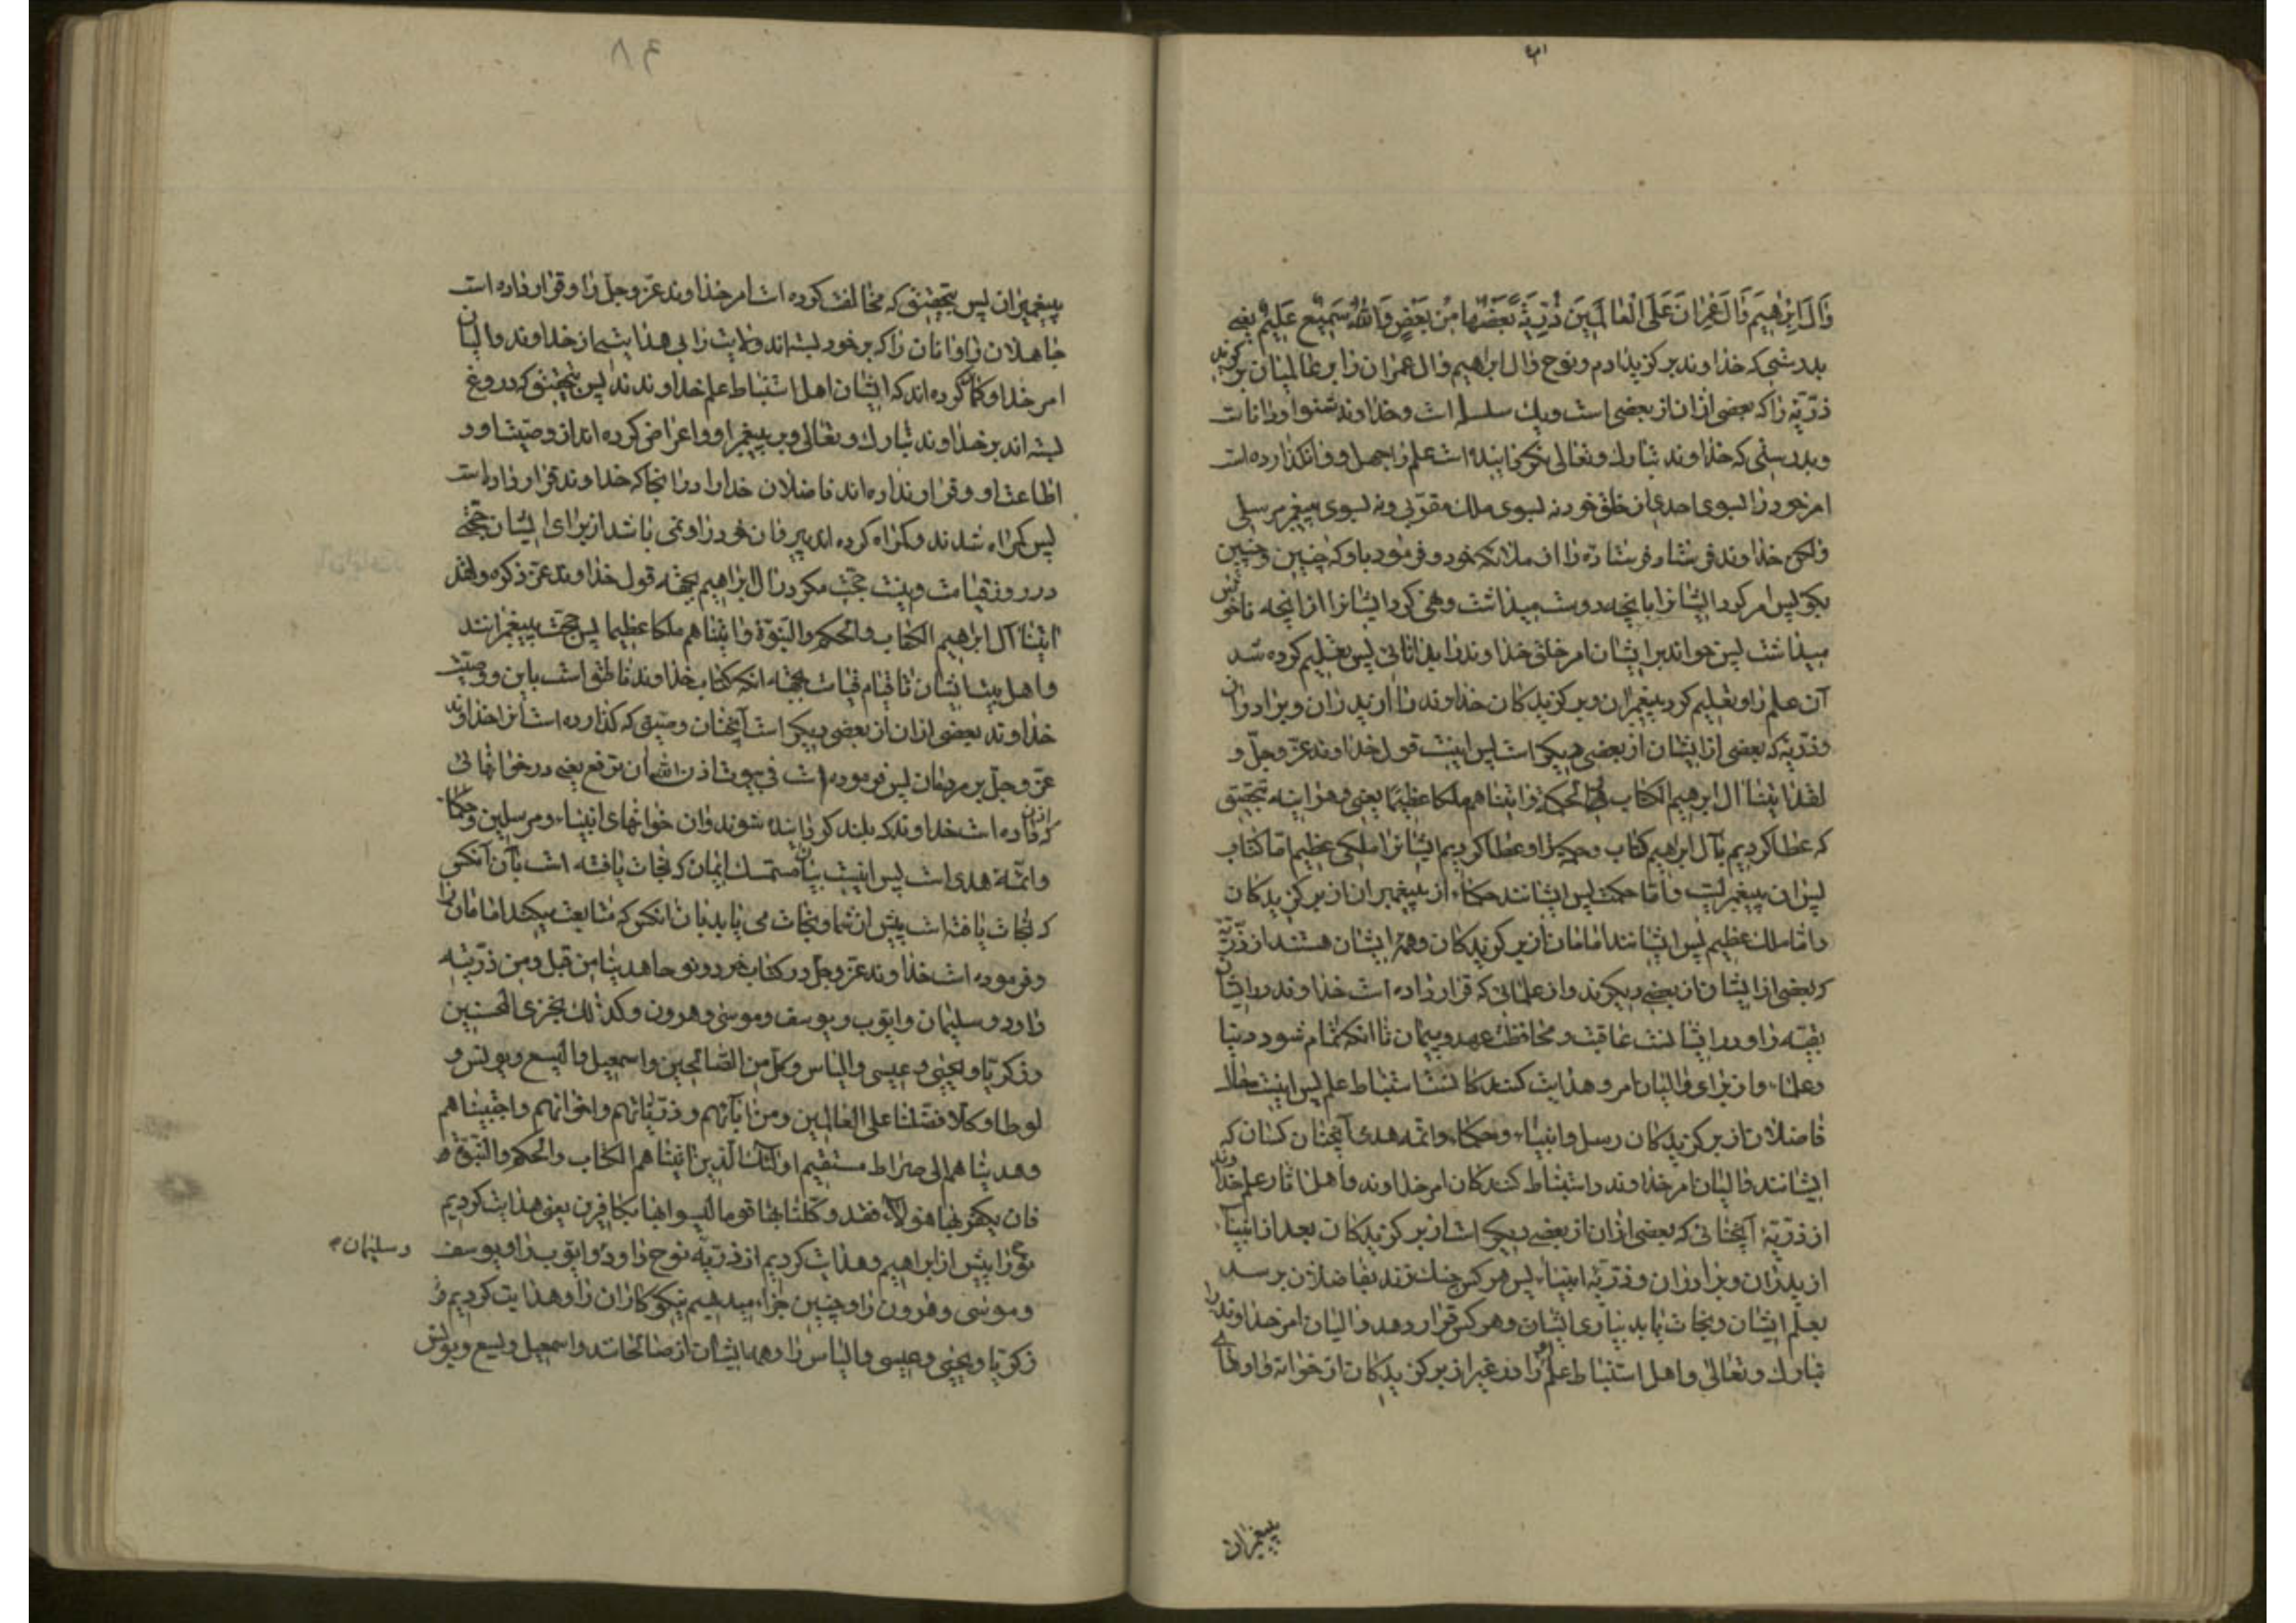 وَآلَ اِبْرٰهِیمَ وَآلَ عِمْرٰانَ عَلَی الْعٰالَمِینَ ذُرِّیَّةً بَعْضُهٰا مِنْ بَعْضٍ وَاللّٰهُ سَمِیعٌ عَلِیمٌ یعنی
بدرستی که خداوند برگزید ادم و نوح وال ابراهیم وال عمران را بر عالمیان برگزیدند
ذرّیّه را که بعضی از ان از بعضی است و یك سلسله است و خداوند شنوا و دانا است
و بدرستی که خداوند تبارك و تعالی نگردانیده است علم را جهل و وانگذارده است
امر خود را بسوی احدی از خلق خود نه بسوی ملك مقرّبی و نه بسوی پیغمبر مرسلی
ولکن خداوند فرستاد فرستاده را از ملائکه خود و فرمود باو که چنین و چنین
بگو پس امر کرد ایشانرا بانچه دوست میداشت و نهی کرد ایشانرا از انچه ناخوش
میداشت پس خواند بر ایشان امر خلق خداوند را بدانائی پس تعلیم کرده شد
آن علم را و تعلیم کرد پیغمبران و برگزیدگان خداوند را از پدران و برادران
و ذرّیّه که بعضی از ایشان از بعضی دیگر است پس اینست قول خداوند عزّ و جلّ و
لقد اتینا ال ابرهیم الکتاب والحکمة واتیناهم ملکا عظیما یعنی و هراینه بتحقیق
که عطا کردیم بآل ابراهیم کتاب و حکمة را و عطا کردیم ایشانرا ملکی عظیم امّا کتاب
پس ان پیغمبریست و امّا حکمت پس ایشانند حکماء از پیغمبران از برگزیدگان
و امّا ملك عظیم پس ایشانند امامان از برگزیدگان و همه ایشان هستند از ذرّیّه
که بعضی از ایشان از بعضی دیگرند و از علمائی که قرار داده است خداوند در ایشان
بقیّه را و در ایشانست عاقبت و محافظت عهد و پیمان تا انکه تمام شود دنیا
و علماء و از برای والیان امر و هدایت کنندگانست استنباط علم پس اینست حال
فاضلان از برگزیدگان رسل و انبیاء و حکماء و ائمّه هدی آنچنان کسان که
ایشانند والیان امر خداوند و استنباط کنندگان امر خداوند و اهل اثار علم خداوند
از ذرّیّه آنچنانی که بعضی از ان از بعضی دیگر است از برگزیدگان بعد از انبیآء
از پدران و برادران و ذرّیّه انبیاء پس هر کس چنك زند بفاضلان برسد
بعلم ایشان و نجات یابد بیاری ایشان و هر کس قرار دهد والیان امر خداوند را
تبارك و تعالی و اهل استنباط علم او را در غیر از برگزیدگان از خوانه‌واده‌های
پیغمبران
پیغمبران پس بتحقیق که مخالفت کرده است امر خداوند عزّ و جلّ را و قرار داده است
جاهلان را و انان را که بر خود بسته‌اند ولایت را بی هدایتی از خداوند والیان
امر خدا و گمان کرده‌اند که ایشان اهل استنباط علم خداوندند پس بتحقیق که دروغ
بسته‌اند بر خداوند تبارك و تعالی و بر پیغمبر او و اعراض کرده‌اند از وصیّت او و
اطاعت او و قرار نداده‌اند فاضلان خدا را در انجا که خداوند قرار داده است
پس گمراه شدند و گمراه کرده‌اند پیروان خود را و نمی باشد از برای ایشان حجّتی
در روز قیامت و نیست حجّت مگر در ال ابراهیم بجهة قول خداوند عزّ ذکره و لقد
اتینا آل ابرهیم الکتاب والحکم والنبوّة واتیناهم ملکا عظیما پس حجّت پیغمبرانند
و اهل بیت ایشان تا قیام قیامت بجهة انکه کتاب خداوند ناطق است باین و وصیّت
خداوند بعضی از ان از بعضی دیگر است آنچنان وصیّتی که گذارده است انرا خداوند
عزّ و جلّ بر مردمان پس فرموده است فی بیوت اذن الله ان ترفع یعنی در خوانهائی
که اذن داده است خداوند که بلند گردانیده شوند وان خوانهای انبیاء و مرسلین و حکماء
و ائمّه هدی است پس اینست بیان متمسك ایمان که نجات یافته است بآن آنکس
که نجات یافته است پیش از شما و نجات می یابد بان انکس که متابعت میکند امامان را
و فرموده است خداوند عزّ و جلّ در کتاب خود و نوحا هدینا من قبل و من ذرّیّته
داود و سلیمان و ایّوب و یوسف و موسی و هرون و کذلك نجزی المحسنین
و زکریّا و یحیی و عیسی و الیاس و کلّ من الصّالحین و اسمعیل و الیسع و یونس و
لوطا و کلّا فضّلنا علی العالمین و من آبآئهم و ذرّیّاتهم و اخوانهم و اجتبیناهم
و هدیناهم الی صراط مستقیم اولئك الّذین اتیناهم الکتاب والحکم والنّبوّة
فان یکفر بها هؤلاء فقد وکّلنا بها قوما لیسوا بها بکافرین یعنی هدایت کردیم
نوح را پیش از ابراهیم و هدایت کردیم از ذرّیّه نوح داود و ایّوب را و یوسف
و سلیمان
و موسی و هرون را و چنین جزاء میدهیم نیکوکاران را و هدایت کردیم
زکریّا و یحیی و عیسی و الیاس را و همه ایشان از صالحانند و اسمعیل و یسع و یونس